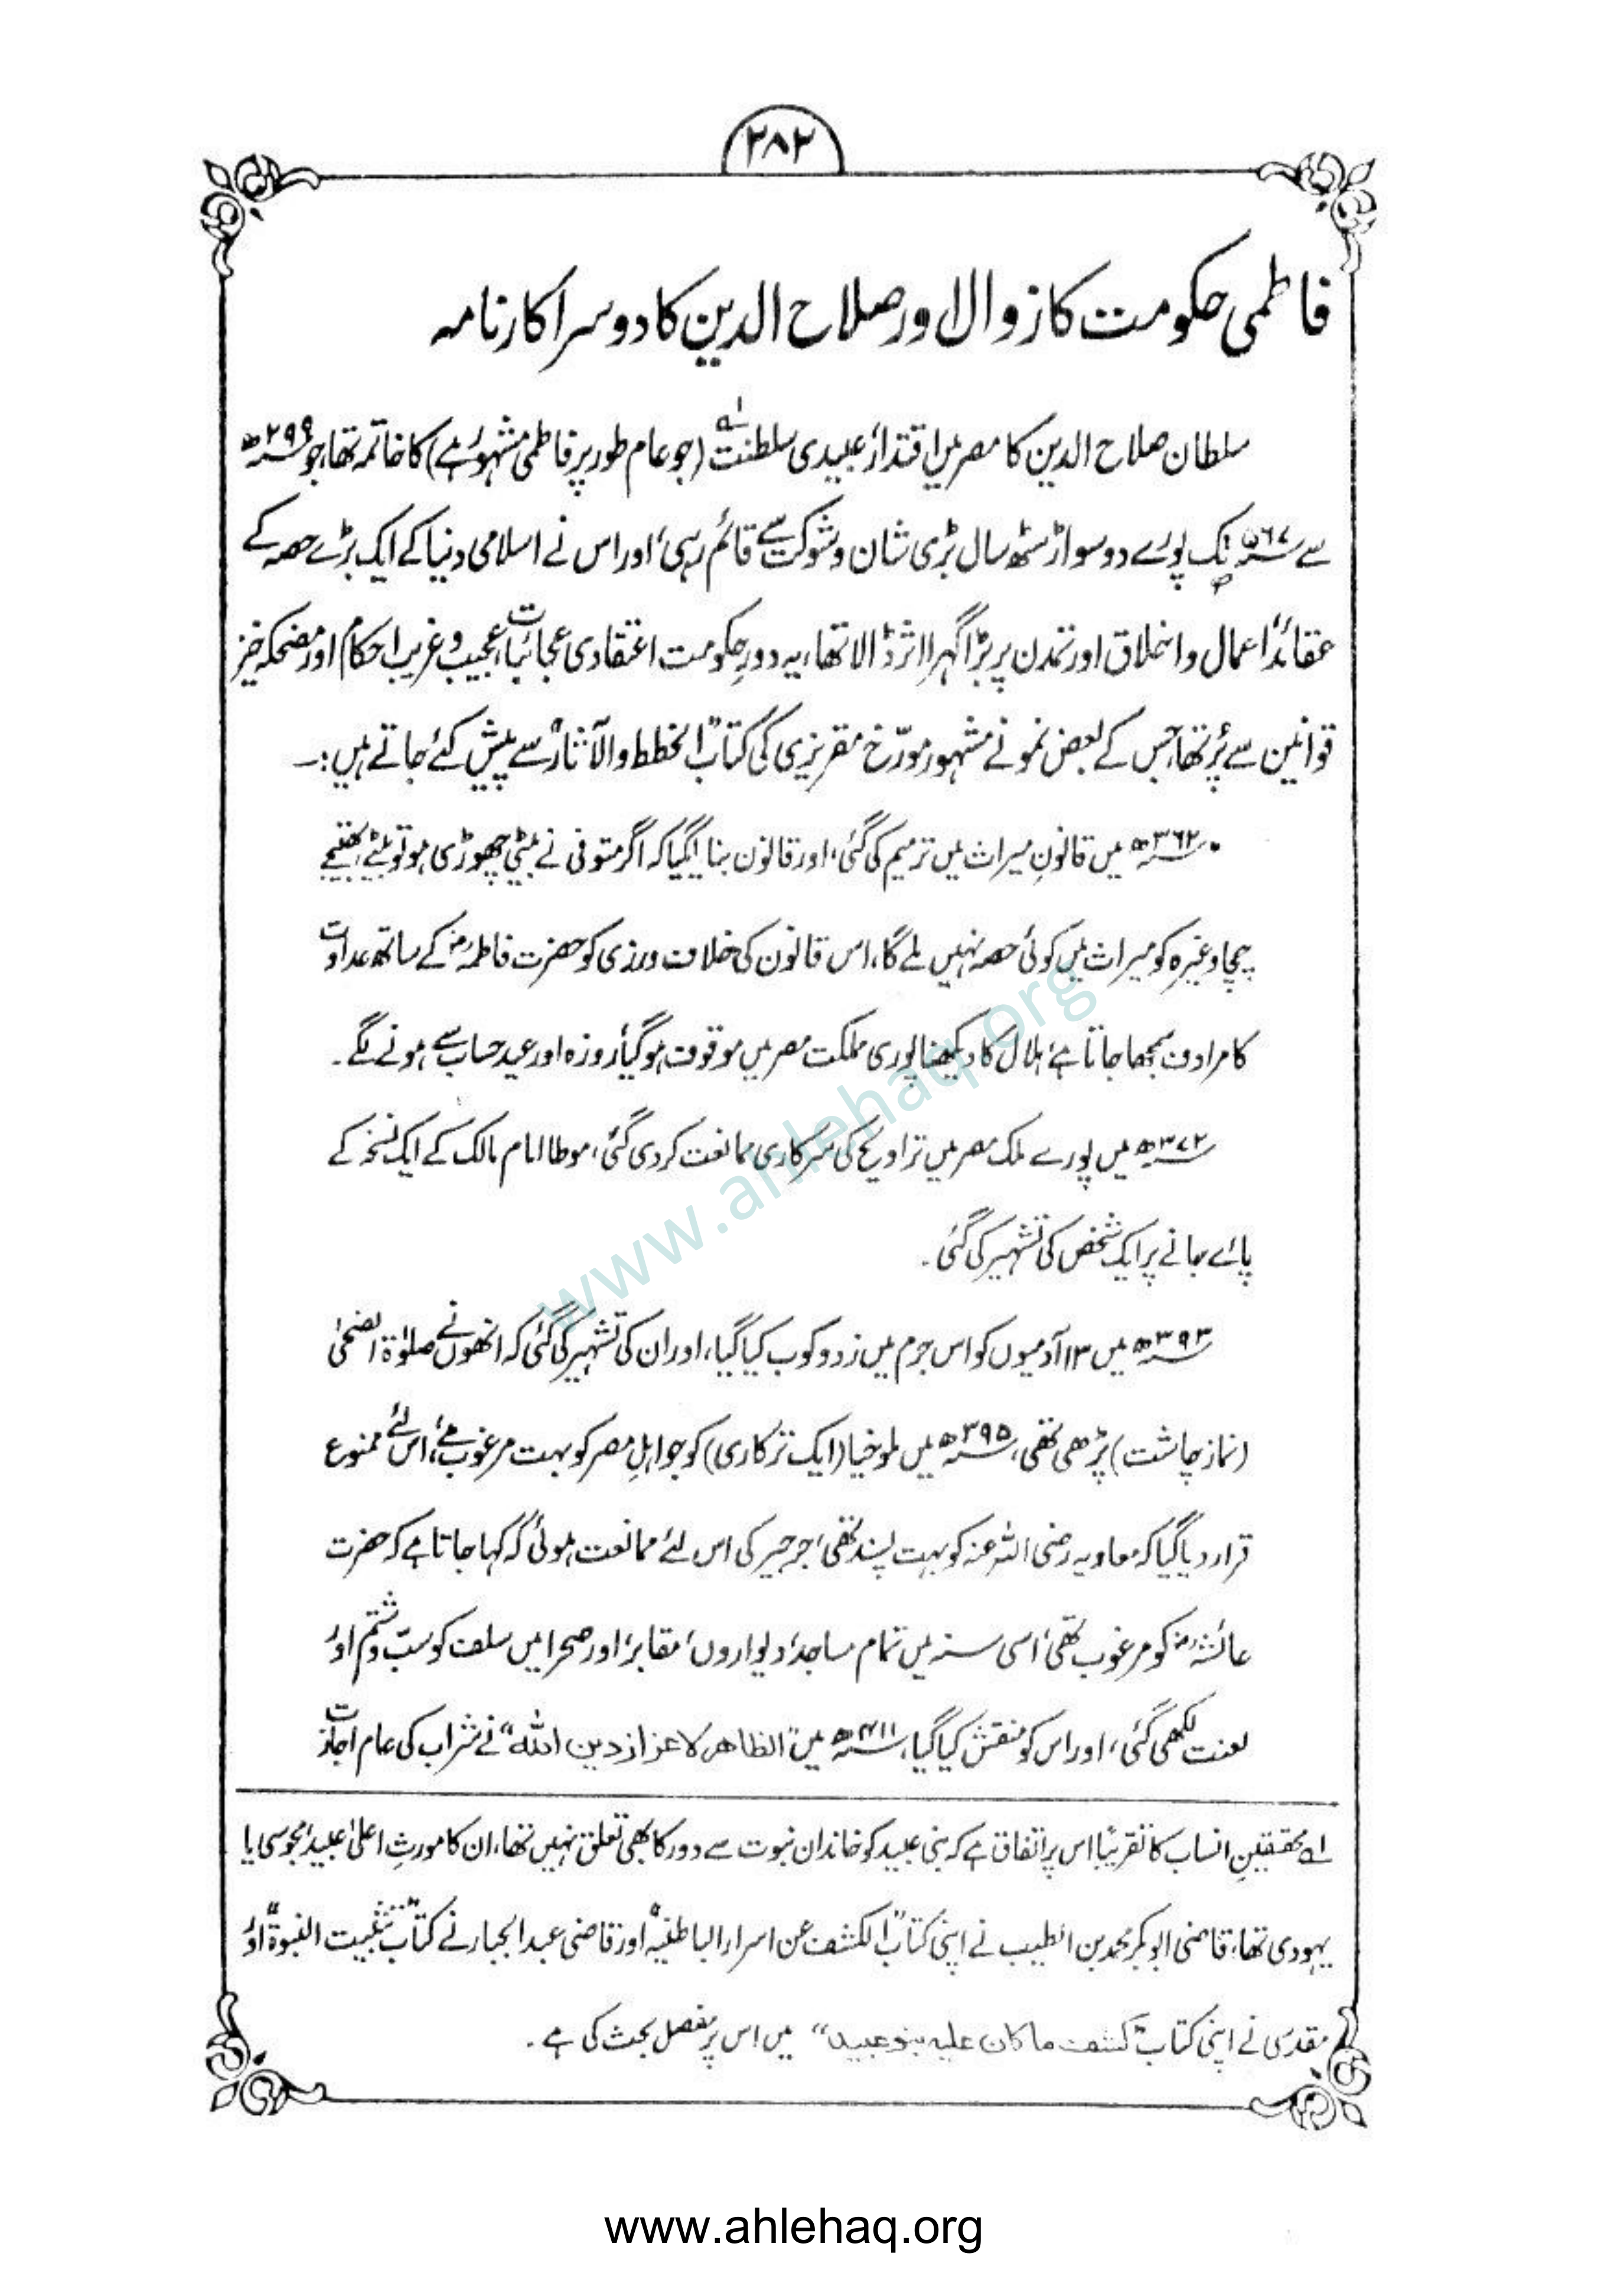 ۲۸۲
فاطمی حکومت کا زوال اور صلاح الدین کا دوسرا کارنامہ
سلطان صلاح الدین کا مصر میں اقتدار، عبیدی سلطنت ۱ے (جو عام طور پر فاطمی مشہور ہے) کا خاتمہ تھا، جو ۲۹۹ھ
سے ۵۶۷ھ تک پورے دو سو اڑسٹھ سال بڑی شان و شوکت سے قائم رہی، اور اس نے اسلامی دنیا کے ایک بڑے حصہ کے
عقائد، اعمال و اخلاق اور تمدن پر بڑا گہرا اثر ڈالا تھا، یہ دورِ حکومت اعتقادی عجائبات، عجیب و غریب احکام اور مضحکہ خیز
قوانین سے پُر تھا، جس کے بعض نمونے مشہور مورّخ مقریزی کی کتاب "الخطط والآثار" سے پیش کئے جاتے ہیں:۔
• ۳۶۲ھ میں قانونِ میراث میں ترمیم کی گئی، اور قانون بنایا گیا کہ اگر متوفی نے بیٹی چھوڑی ہو تو بیٹے، بھتیجے
چچا وغیرہ کو میراث میں کوئی حصہ نہیں ملے گا، اس قانون کی خلاف ورزی کو حضرت فاطمہؓ کے ساتھ عداوت
کا مرادف سمجھا جاتا ہے، ہلال کا دیکھنا پوری مملکت مصر میں موقوف ہو گیا، روزہ اور عید حساب سے ہونے لگے۔
۳۷۲ھ میں پورے ملک مصر میں تراویح کی سرکاری ممانعت کر دی گئی، موطا امام مالک کے ایک نسخہ کے
پائے جانے پر ایک شخص کی تشہیر کی گئی۔
۳۹۳ھ میں ۱۳ آدمیوں کو اس جرم میں زد و کوب کیا گیا، اور ان کی تشہیر کی گئی کہ انھوں نے صلوٰۃ الضحیٰ
(نماز چاشت) پڑھی تھی، ۳۹۵ھ میں ملوخیا (ایک ترکاری) کو جو اہلِ مصر کو بہت مرغوب ہے، اس لئے ممنوع
قرار دیا گیا کہ معاویہ رضی اللہ عنہ کو بہت پسند تھی، جرجیر کی اس لئے ممانعت ہوئی کہ کہا جاتا ہے کہ حضرت
عائشہؓ کو مرغوب تھی، اسی سنہ میں تمام مساجد، دیواروں، مقابر، اور صحرا میں سلف کو سبّ و شتم اور
لعنت لکھی گئی، اور اس کو منقش کیا گیا، ۴۱۱ھ میں "الظاهر لاعزاز دین اللہ" نے شراب کی عام اجازت
۱ے محققینِ انساب کا تقریباً اس پر اتفاق ہے کہ بنی عبید کو خاندان نبوت سے دور کا بھی تعلق نہیں تھا، ان کا مورثِ اعلیٰ عبید، مجوسی یا
یہودی تھا، قاضی ابو بکر محمد بن الطیب نے اپنی کتاب "الکشف عن اسرار الباطنیہ" اور قاضی عبد الجبار نے کتاب "تثبیت النبوۃ" اور
مقدسی نے اپنی کتاب "کشف ما کان علیہ بنو عبید" میں اس پر مفصل بحث کی ہے۔
www.ahlehaq.org
www.ahlehaq.org